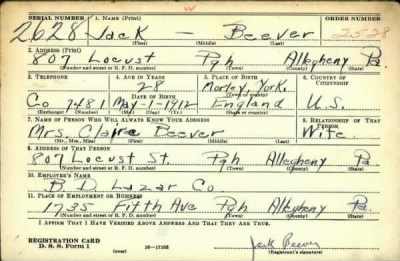 SERIAL NUMBER 1. NAME (Print) ORDER NUMBER
2628 Jack — Beever 2528
(First) (Middle) (Last)
2. ADDRESS (Print)
807 Locust Pgh Allegheny Pa.
(Number and street or R. F. D. number) (Town) (County) (State)
3. TELEPHONE 4. AGE IN YEARS 5. PLACE OF BIRTH 6. COUNTRY OF CITIZENSHIP
28 Morley, York.
DATE OF BIRTH (Town or county)
Co 7481 May-1-1912 England U.S.
(Exchange) (Number) (Mo.) (Day) (Yr.) (State or country)
7. NAME OF PERSON WHO WILL ALWAYS KNOW YOUR ADDRESS 8. RELATIONSHIP OF THAT PERSON
Mrs. Claire Beever Wife
(Mr., Mrs., Miss) (First) (Middle) (Last)
9. ADDRESS OF THAT PERSON
807 Locust St. Pgh Allegheny Pa.
(Number and street or R. F. D. number) (Town) (County) (State)
10. EMPLOYER'S NAME
B. D. Lazar Co
11. PLACE OF EMPLOYMENT OR BUSINESS
1735 Fifth Ave Pgh Allegheny Pa.
(Number and street or R. F. D. number) (Town) (County) (State)
I AFFIRM THAT I HAVE VERIFIED ABOVE ANSWERS AND THAT THEY ARE TRUE.
REGISTRATION CARD Jack Beever
D. S. S. Form 1 (over) 16—17105 (Registrant's signature)